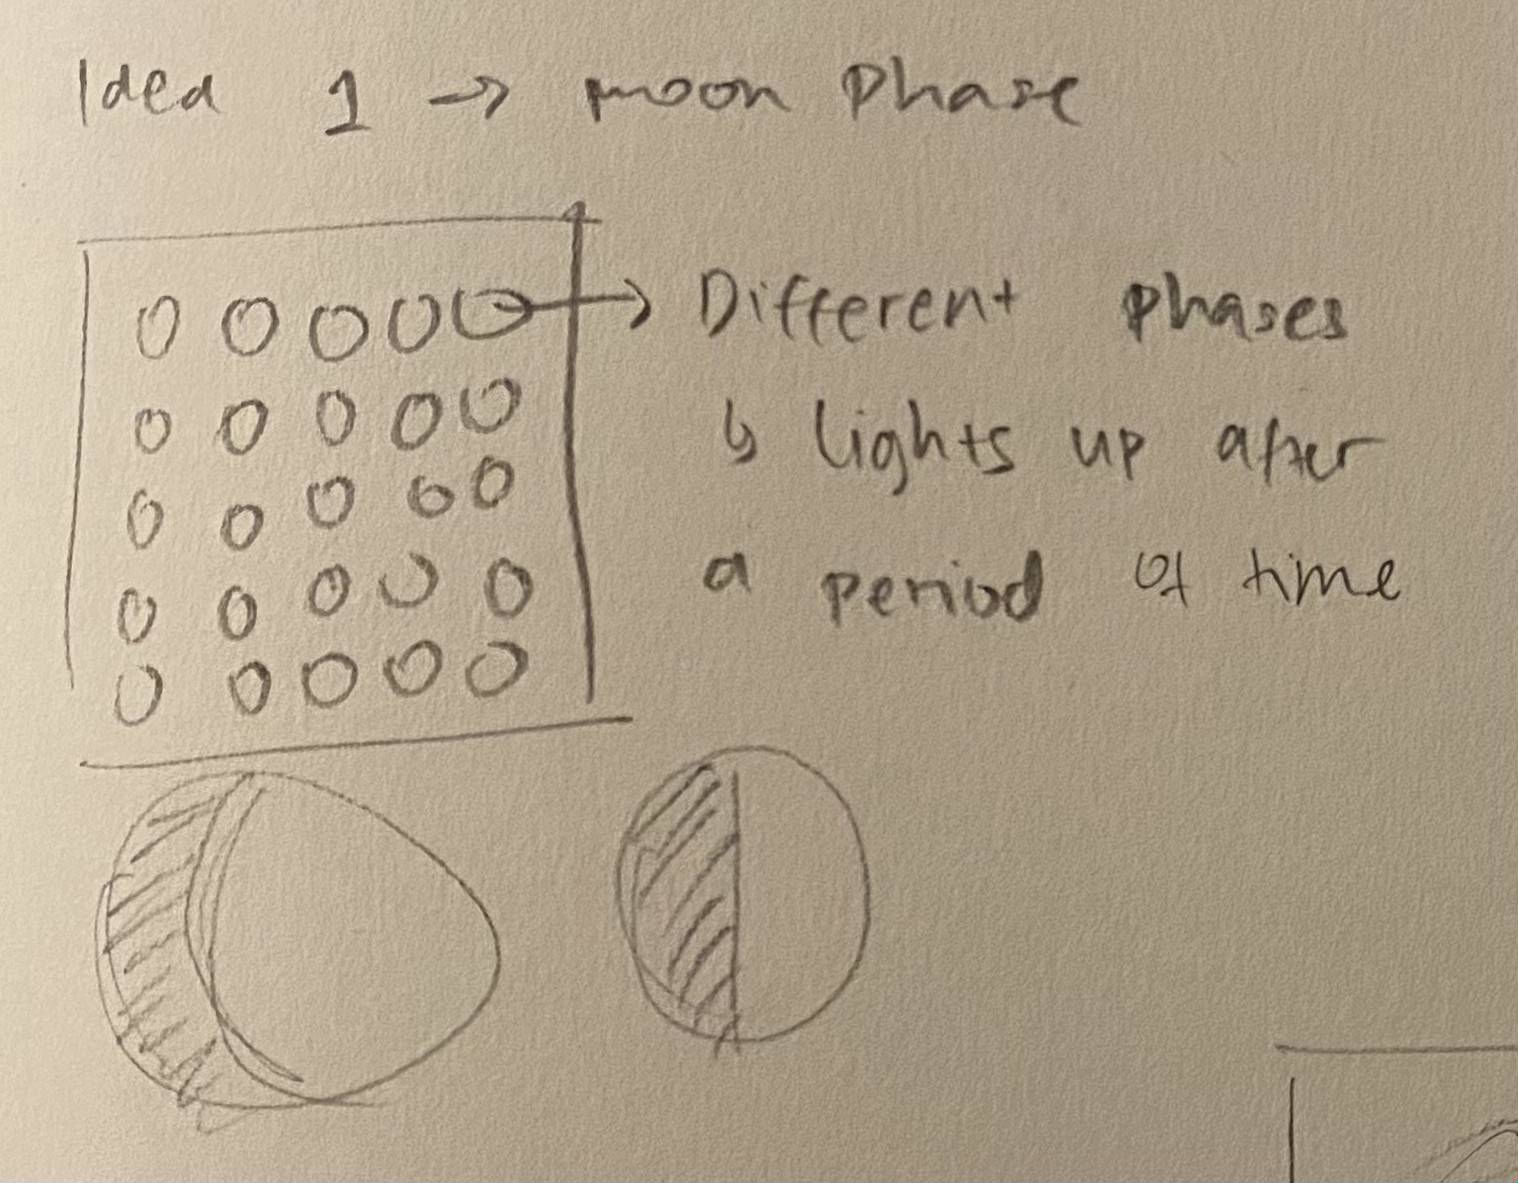 Idea 1 → moon Phase
Different phases
↳ lights up after
a period of time